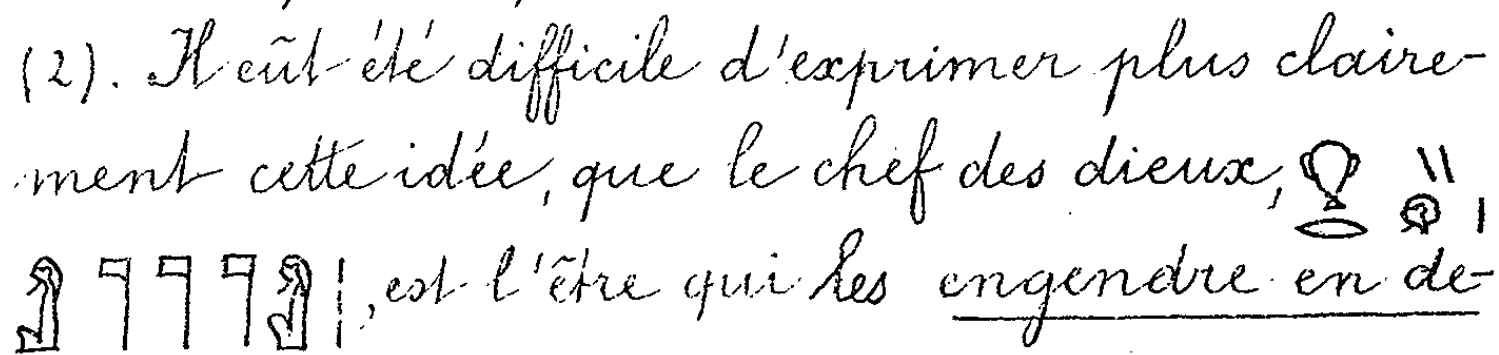 (2). Il eût été difficile d'exprimer plus claire-
ment cette idée, que le chef des dieux,
, est l'être qui les engendre en de-